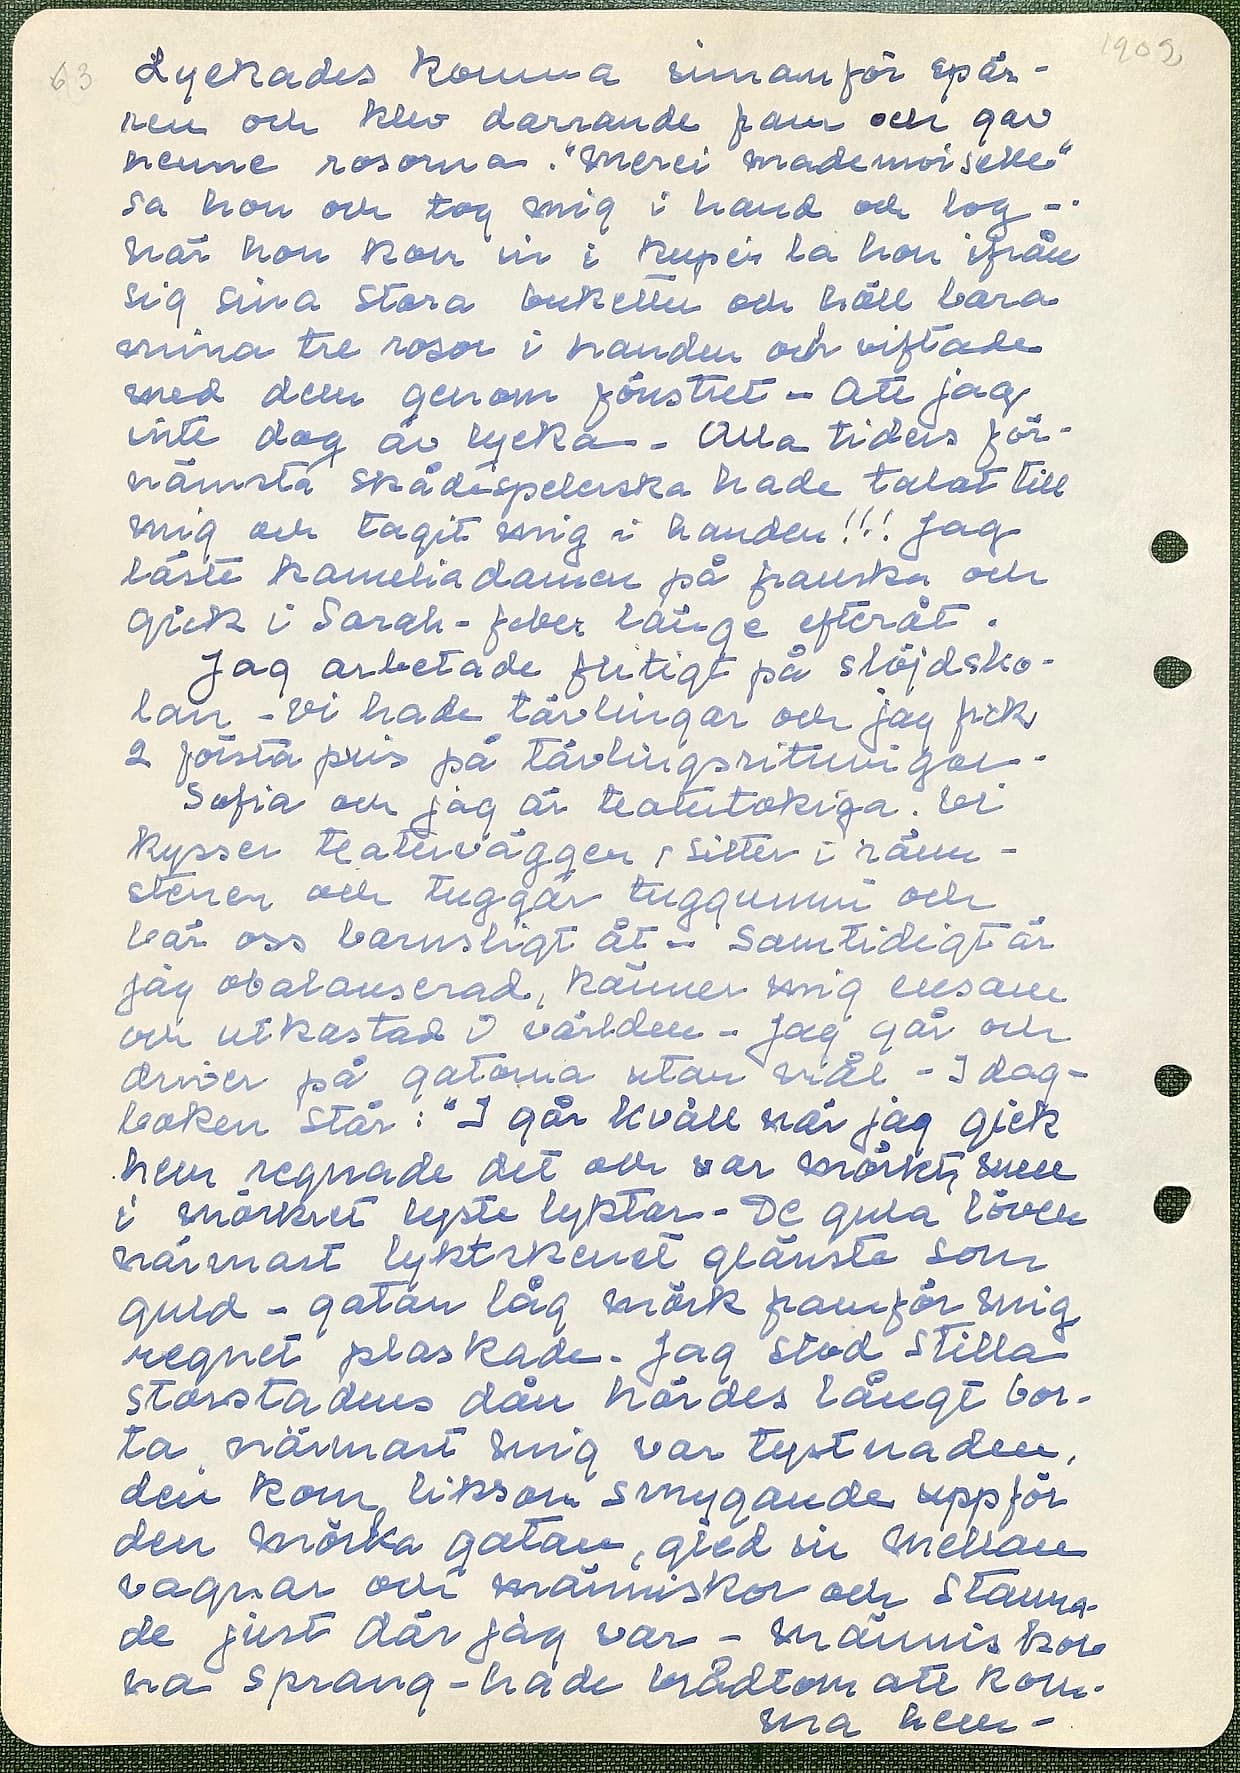 63
1902
Lyckades komma innanför spär-
ren och klev darrande fram och gav
henne rosorna. "Merci mademoiselle"
sa hon och tog mig i hand och log -
När hon kom in i kupén la hon ifrån
sig sina stora buketter och höll bara
mina tre rosor i handen och viftade
med dem genom fönstret - Att jag
inte dog av lycka - Alla tiders för-
nämsta skådespelerska hade talat till
mig och tagit mig i handen!!! Jag
läste Kameliadamen på franska och
gick i Sarah-feber länge efteråt.
Jag arbetade flitigt på slöjdsko-
lan - Vi hade tävlingar och jag fick
2 första pris på tävlingsritningar -
Sofia och jag är teatertokiga. Vi
kysser teaterväggen, sitter i ränn-
stenen och tuggar tuggummi och
bär oss barnsligt åt - Samtidigt är
jag obalanserad, känner mig ensam
och utkastad i världen - Jag går och
driver på gatorna utan mål - I dag-
boken står: "I går kväll när jag gick
hem regnade det och var mörkt, men
i mörkret lyste lyktor - De gula löven
närmast lyktskenet glänste som
guld - gatan låg mörk framför mig
regnet plaskade - Jag stod stilla
storstadens dån hördes långt bor-
ta, närmast mig var tystnaden,
den kom liksom smygande uppför
den mörka gatan, gled in mellan
vagnar och människor och stanna-
de just där jag var - människor
na sprang - hade bråttom att kom-
ma hem -